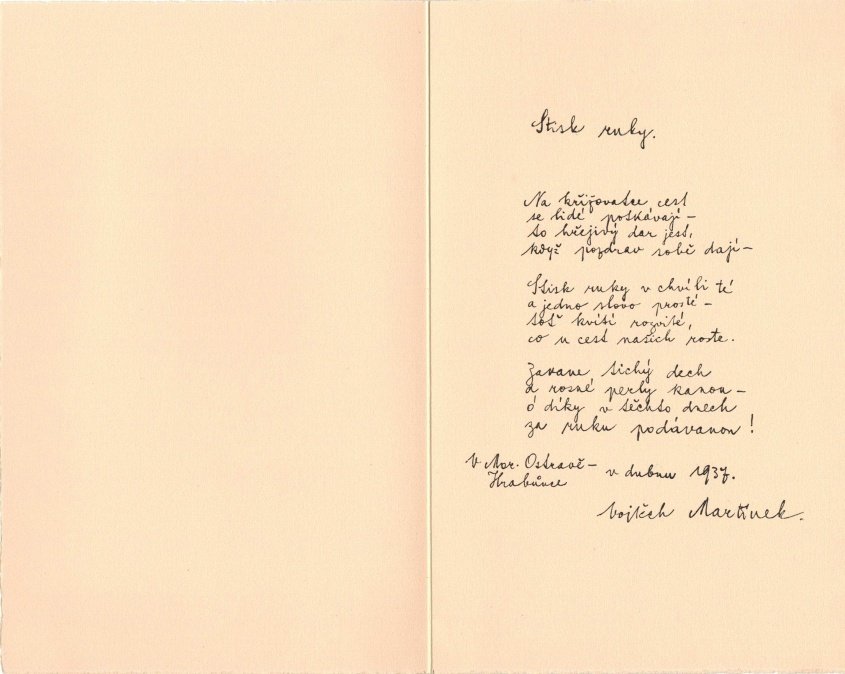 Stisk ruky.
Na křižovatce cest
se lidé potkávají –
to hřejivý dar jest,
když pozdrav sobě dají –
Stisk ruky v chvíli té
a jedno slovo prosté –
toť kvítí rozvité,
co u cest našich roste.
Zavane tichý dech
a rosné perly kanou –
ó díky v těchto dnech
za ruku podávanou!
V Mor. Ostravě –
Hrabůvce
v dubnu 1937.
Vojtěch Martínek.